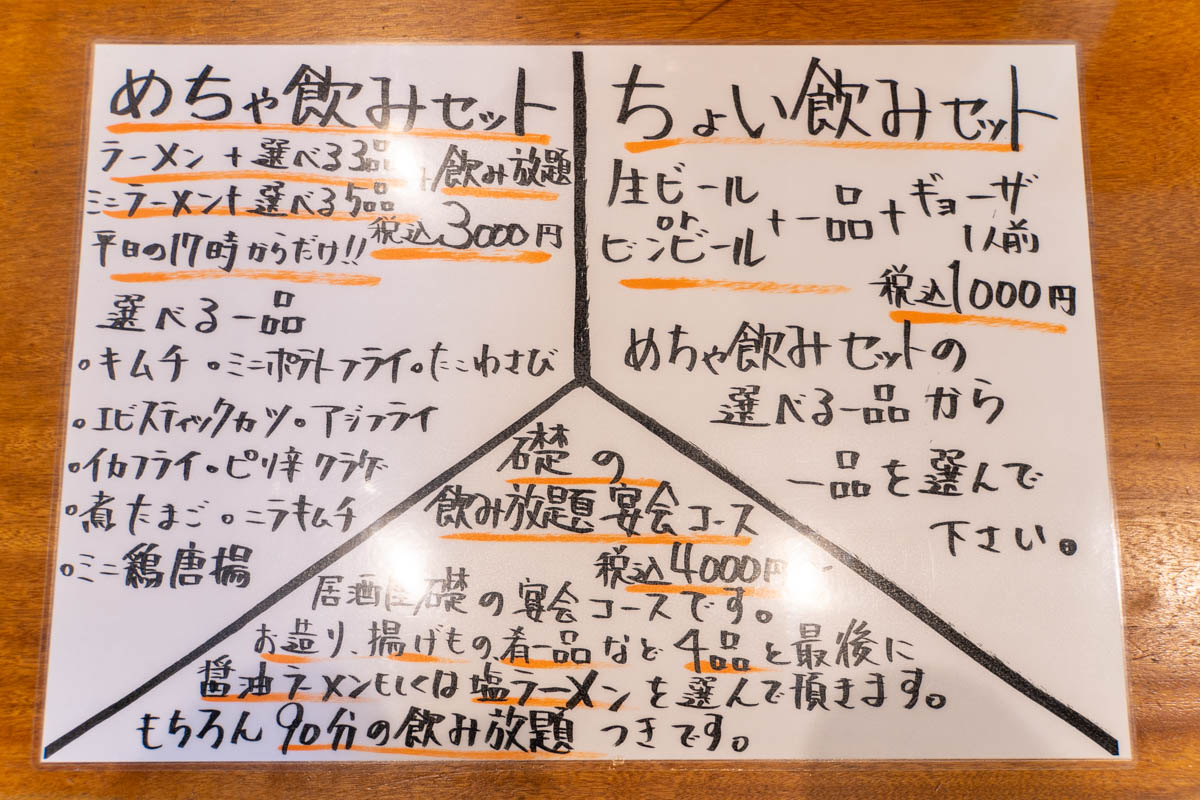 めちゃ飲みセット
ラーメン+選べる3品
ミニラーメン+選べる5品
+飲み放題
平日の17時からだけ!!
税込3000円
選べる一品
・キムチ ・ミニポテトフライ ・たこわさび
・エビスティックカツ ・アジフライ
・イカフライ ・ピリ辛クラゲ
・煮たまご ・ニラキムチ
・ミニ鶏唐揚
ちょい飲みセット
生ビール
or
ビンビール
+一品+ギョーザ
1人前
税込1000円
めちゃ飲みセットの
選べる一品から
一品を選んで
下さい。
礎の
飲み放題宴会コース
税込4000円
居酒屋礎の宴会コースです。
お造り、揚げもの、肴一品など4品と最後に
醤油ラーメンもしくは塩ラーメンを選んで頂きます。
もちろん90分の飲み放題つきです。